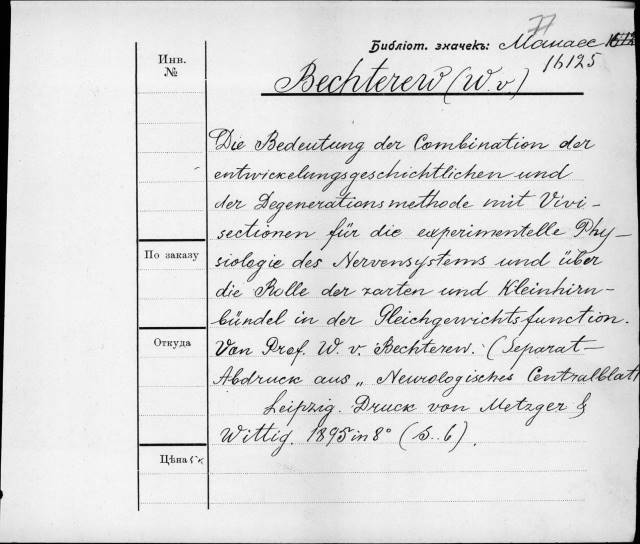 77
Библіот. значекъ: Манасс
16125
Инв.
№
Bechterew (W. v)
Die Bedeutung der Combination der
entwickelungsgeschichtlichen und
der Degenerationsmethode mit Vivi-
sectionen für die experimentelle Phy-
По заказу
siologie des Nervensystems und über
die Rolle der zarten und Kleinhirn-
bündel in der Gleichgewichtsfunction.
Откуда
Von Prof. W. v. Bechterew. (Separat-
Abdruck aus „ Neurologisches Centralblatt
Leipzig. Druck von Metzger &
Wittig. 1895 in 8° (S. 6).
Цѣна